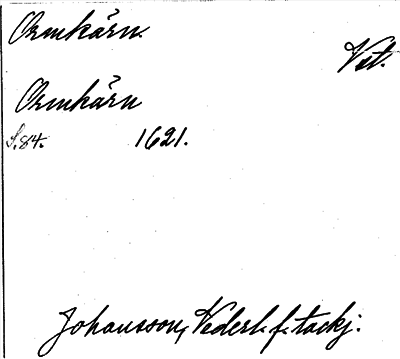 Ormkärn.
Vst.
Ormkärn
S. 84. 1621.
Johansson, Vederl. f. tackj.